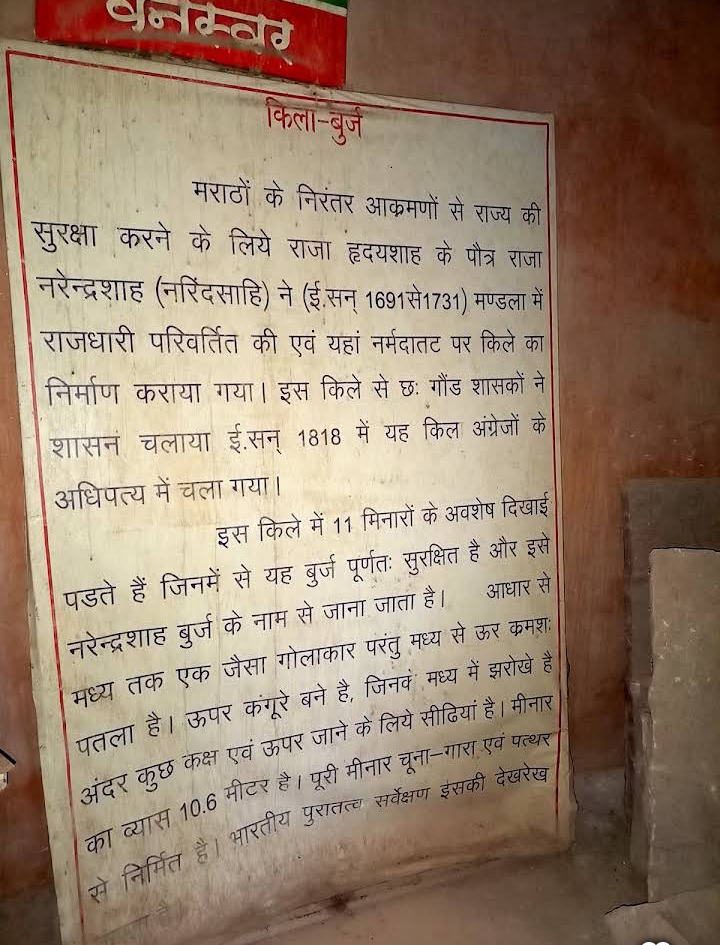 वनस्वर
किला-बुर्ज
मराठों के निरंतर आक्रमणों से राज्य की
सुरक्षा करने के लिये राजा हृदयशाह के पौत्र राजा
नरेन्द्रशाह (नरिंदसाहि) ने (ई.सन् 1691से1731) मण्डला में
राजधारी परिवर्तित की एवं यहां नर्मदातट पर किले का
निर्माण कराया गया। इस किले से छः गौंड शासकों ने
शासन चलाया ई.सन् 1818 में यह किल अंग्रेजों के
अधिपत्य में चला गया।
इस किले में 11 मिनारों के अवशेष दिखाई
पडते हैं जिनमें से यह बुर्ज पूर्णतः सुरक्षित है और इसे
नरेन्द्रशाह बुर्ज के नाम से जाना जाता है। आधार से
मध्य तक एक जैसा गोलाकार परंतु मध्य से ऊर क्रमशः
पतला है। ऊपर कंगूरे बने है, जिनवं मध्य में झरोखे है
अंदर कुछ कक्ष एवं ऊपर जाने के लिये सीढियां है। मीनार
का व्यास 10.6 मीटर है। पूरी मीनार चूना-गारा एवं पत्थर
से निर्मित है। भारतीय पुरातत्व सर्वेक्षण इसकी देखरेख